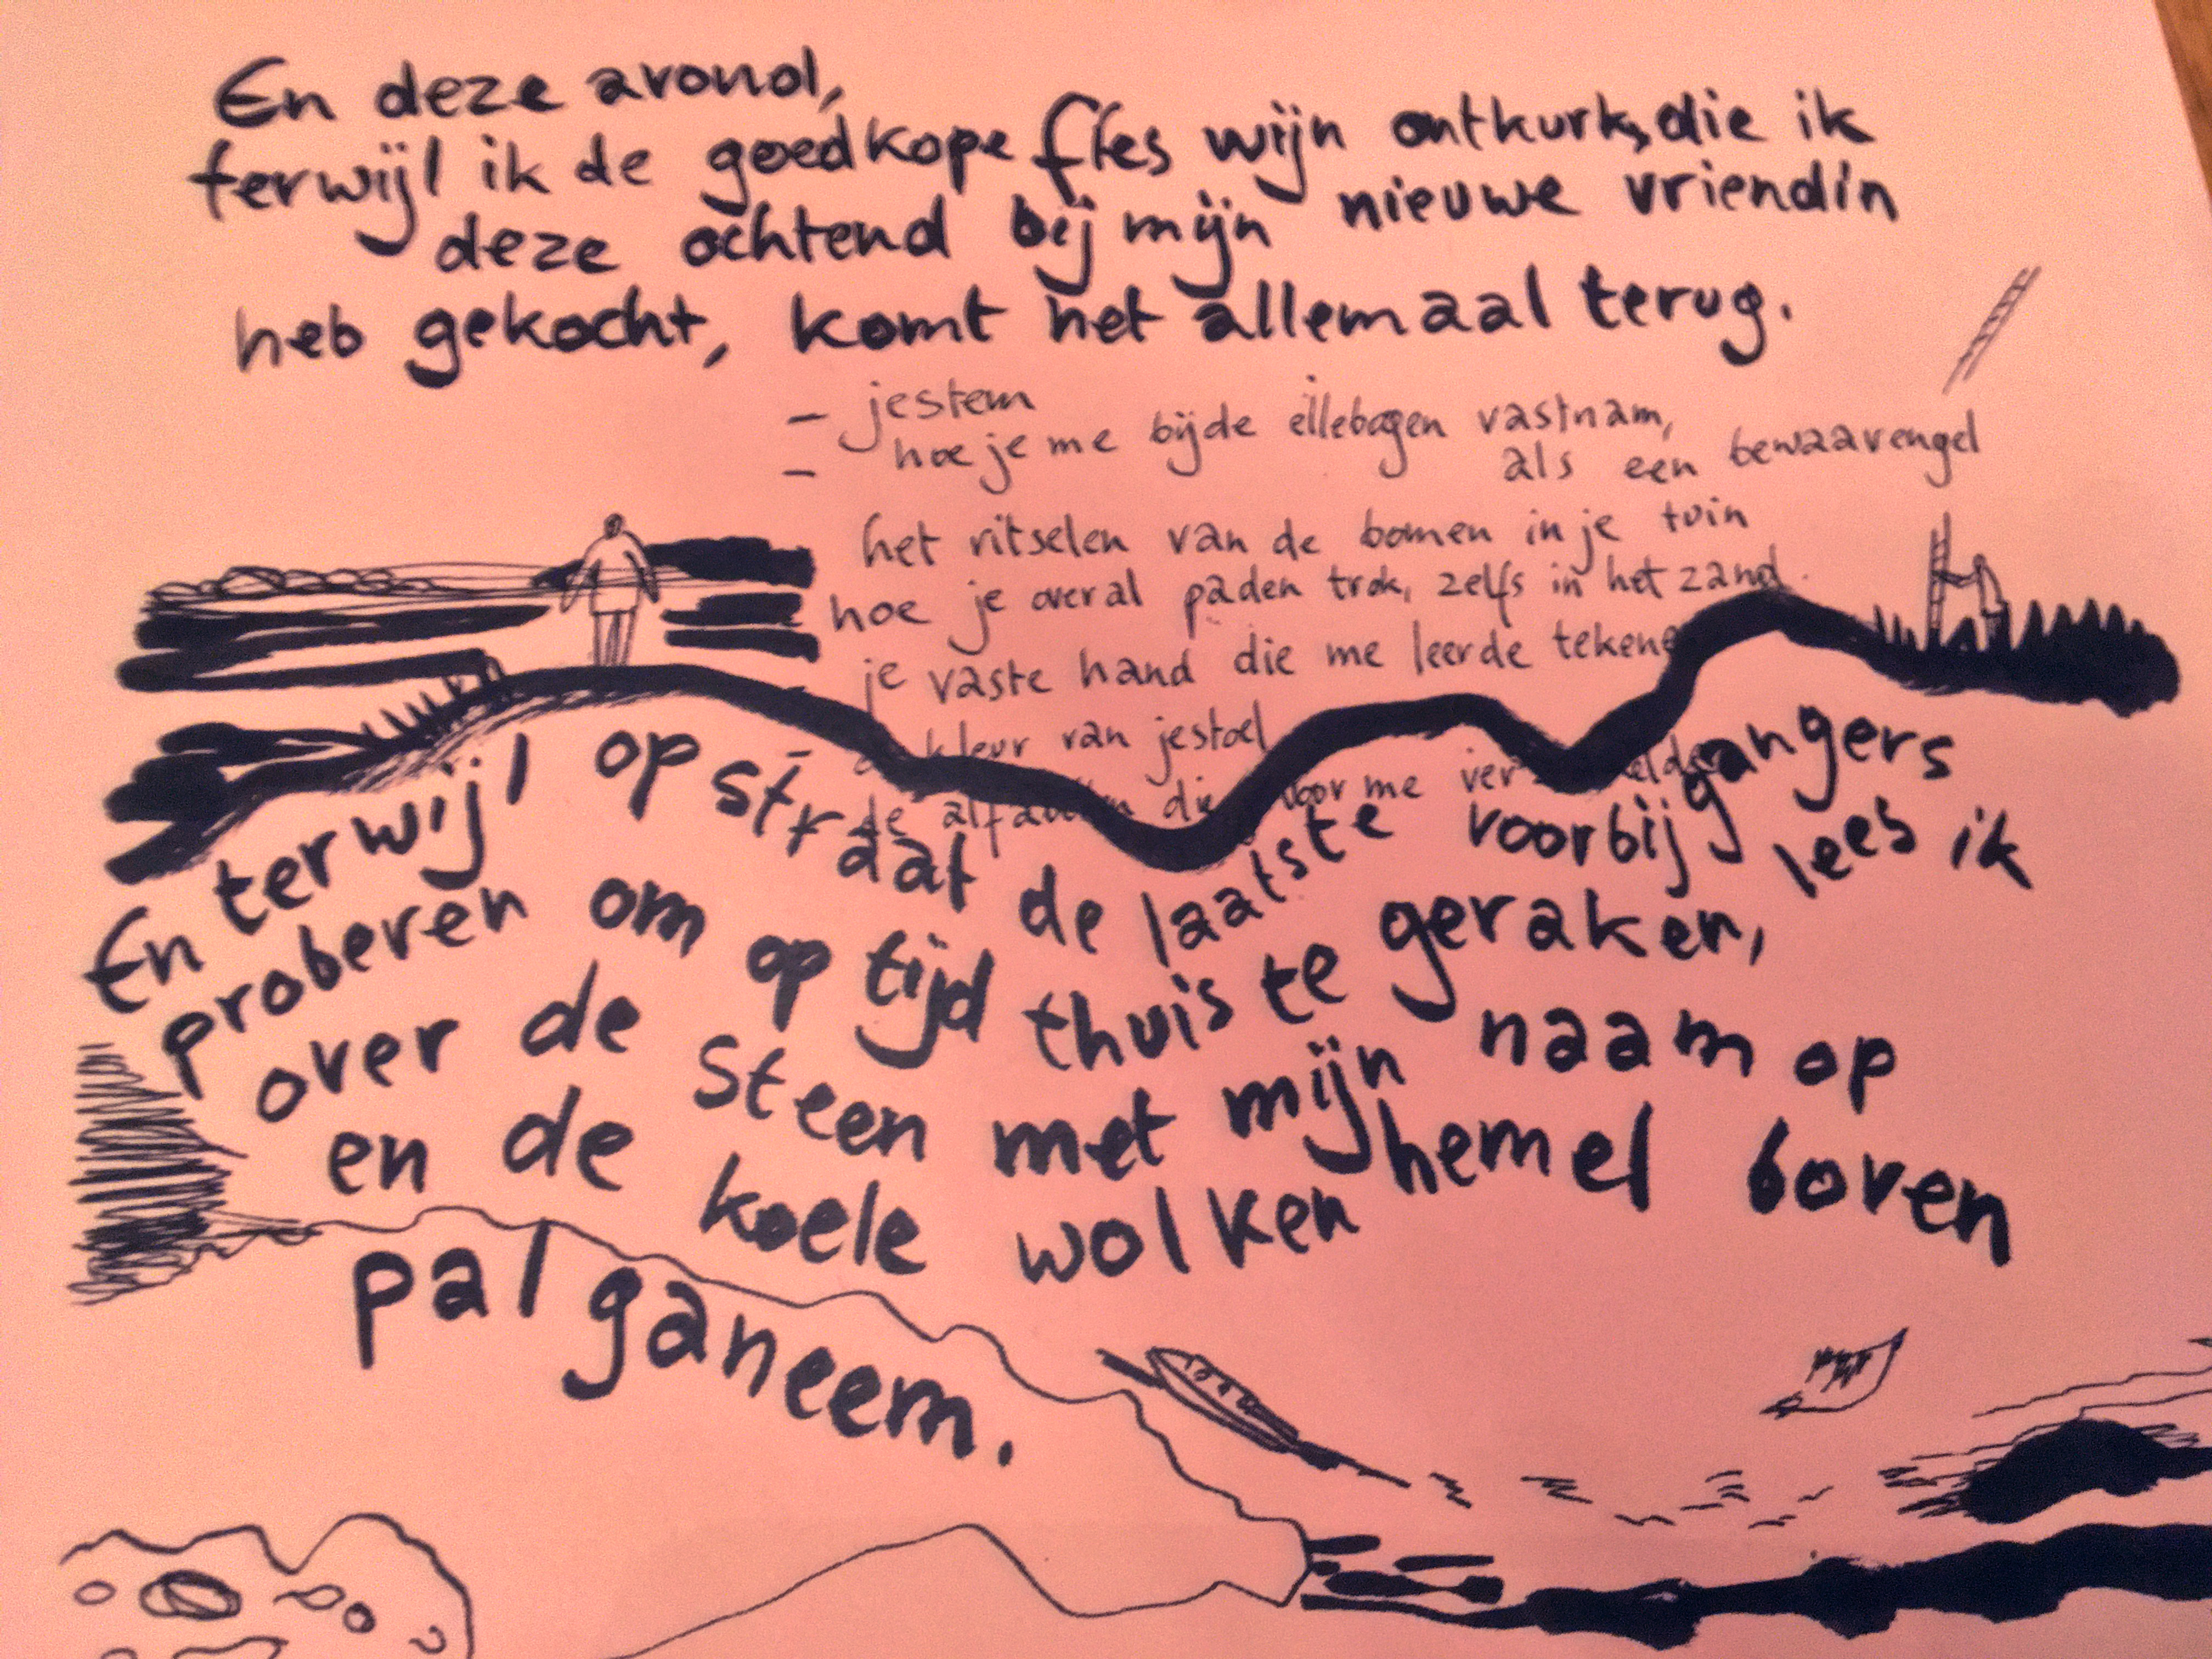 En deze avond,
terwijl ik de goedkope fles wijn ontkurk, die ik
deze ochtend bij mijn nieuwe vriendin
heb gekocht, komt het allemaal terug.
- jestem
- hoe je me bij de ellebogen vastnam,
als een bewaarengel
het ritselen van de bomen in je tuin
hoe je overal paden trok, zelfs in het zand.
je vaste hand die me leerde tekene
- kleur van je stoel
de die voor me
En terwijl op straat de laatste voorbijgangers
proberen om op tijd thuis te geraken, lees ik
over de steen met mijn naam op
en de koele wolkenhemel boven
palganeem.